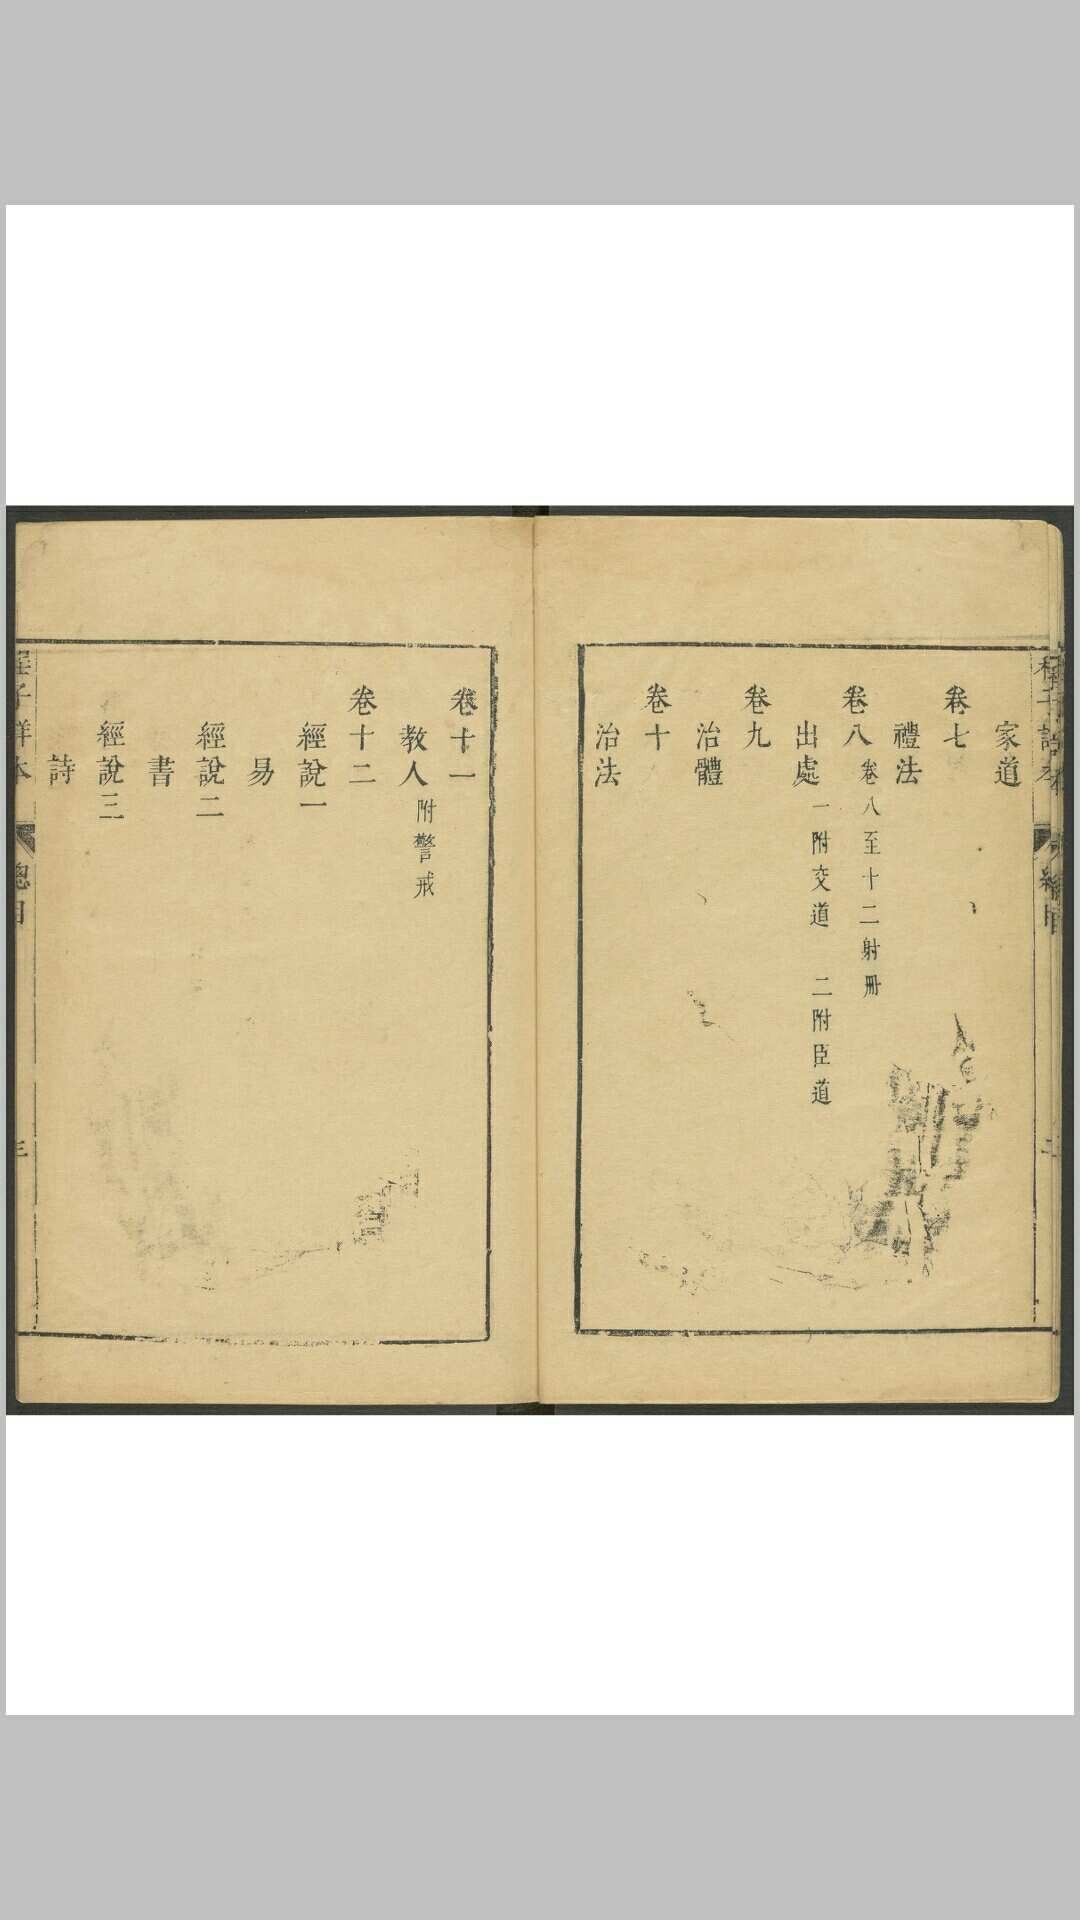 家道
卷七
禮法
卷八 卷八至十二射冊
出處 一附交道 二附臣道
卷九
治體
卷十
治法
卷十一
教人 附警戒
卷十二
經說一
易
經說二
書
經說三
詩
程子詳本 總目 三